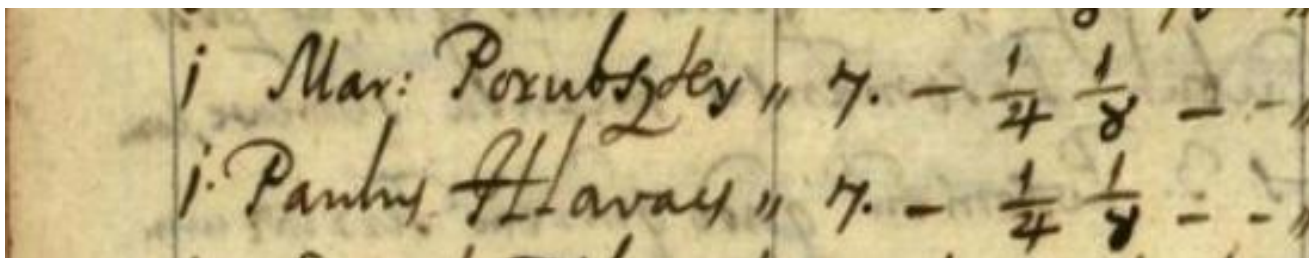 j Mar: Porubszky „ 7. – 1/4 1/8 – – „
j. Paulus Hlavacs „ 7. – 1/4 1/8 – – „